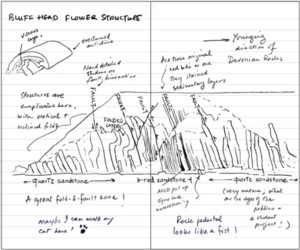 BLUFF HEAD FLOWER STRUCTURE
overturned
anticline
Need detailed
studies on
fault kinematics
Are these original
red beds or are
they stained
sedimentary layers
Younging
direction of
Devonian Rocks
Structures are
complicated here,
with vertical +
inclined folds
FAULT
FAULT
FOLDED LAYERS
FAULT
FAULT
FAULT
quartz sandstone
red sandstone
quartz sandstone
A great fold-&-fault zone!
maybe I can walk my
cat here!
Rock pedestal
looks like a fist!
(very mature, what
are the ages of the
a student
project!)